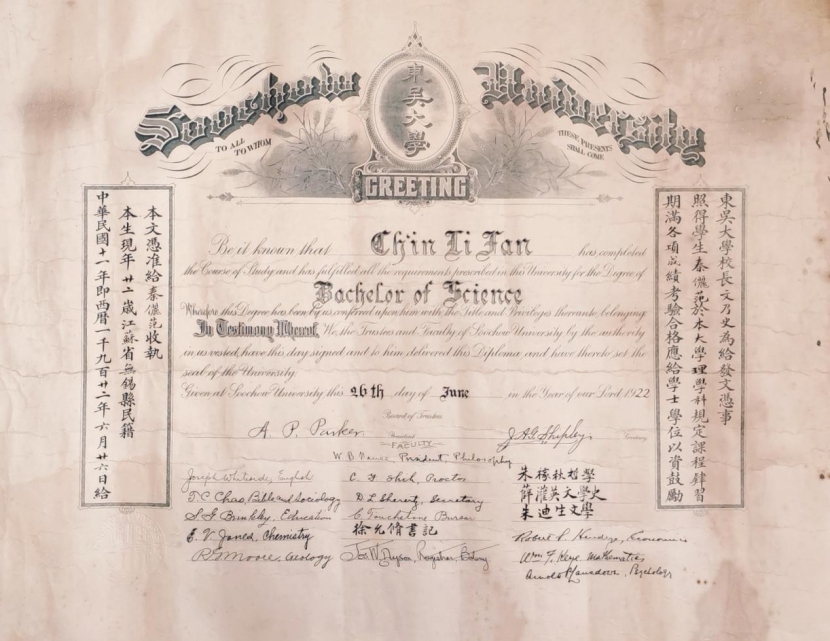 Soochow University
東吳大學
TO ALL TO WHOM
THESE PRESENTS SHALL COME
GREETING
Be it known that Ch'in Li Fan has completed
the Course of Study and has fulfilled all the requirements prescribed in this University for the Degree of
Bachelor of Science
Wherefore this Degree has been by us conferred upon him with the Title and Privileges thereunto belonging
In Testimony Whereof, We, the Trustees and Faculty of Soochow University by the authority
in us vested, have this day signed and to him delivered this Diploma, and have thereto set the
seal of the University.
Given at Soochow University this 26th day of June in the Year of our Lord 1922
Board of Trustees
A. P. Parker
President
J.A.G. Shipley
Secretary
FACULTY
W. B. Nance, President, Philosophy
Joseph Whiteside, English
Proctor
朱稼秋哲學
T.C. Chao, Bible and Sociology
D. L. Sherertz, Secretary
薛灌英文學史
S. G. Brinkley, Education
C. Touchstone
朱迪生文學
E. V. Jones, Chemistry
徐允脩書記
Robert Economics
R. D. Moore, Geology
Registrar
Wm F. Mathematics
Psychology
東吳大學校長文乃史為給發文憑事
照得學生秦儷范於本大學理學科規定課程肄習
期滿各項成績考驗合格應給學士學位以資鼓勵
本文憑准給秦儷范收執
本生現年廿二歲江蘇省無錫縣民籍
中華民國十一年即西曆一千九百廿二年六月廿六日給